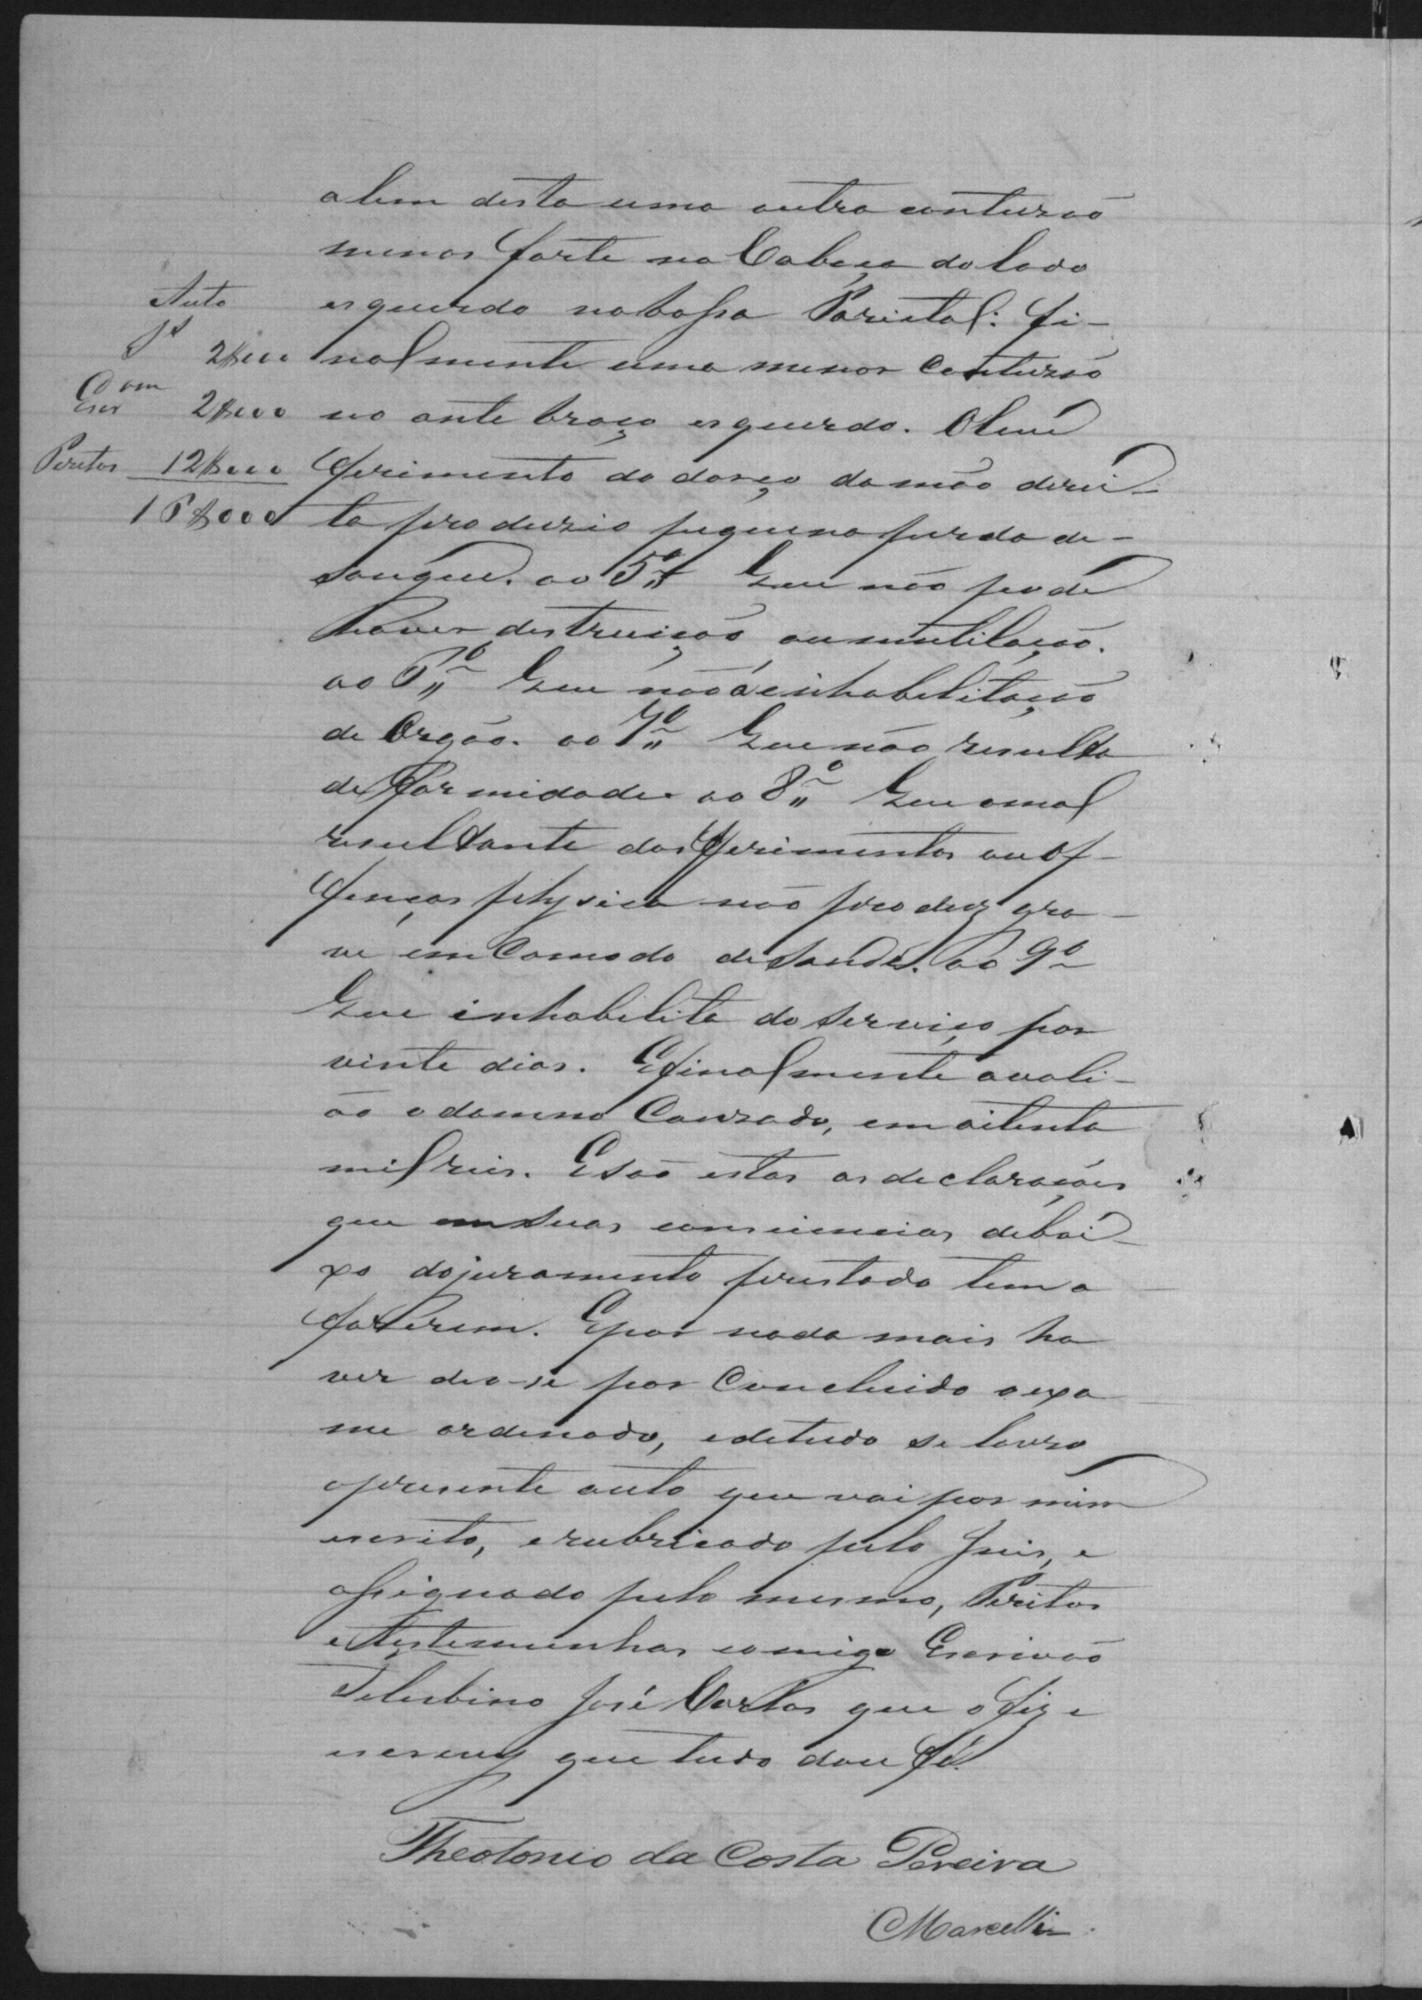 alem desta uma outra contuzão
menos forte na Cabeça do lado
Auto
esquerdo na bossa Parietal: fi-
Jz 2$000
nalmente uma menor Contuzão
Com
Escr 2$000
no ante braço esquerdo. O leve
Peritos 12$000
ferimento do dorço da mão direi-
16$000
ta produzio pequena perda de-
sangue. ao 5º Que não pode
haver destruição ou mutilação.
ao 6º Que não á inhabilitação
de Orgão. ao 7º Que não resulta
deformidade. ao 8º Que o mal
resultante dos ferimentos ou of-
fenças physica não produz gra-
ve incomodo de saude. ao 9º
Que inhabilita do Serviço por
vinte dias. E finalmente avali-
ão o damno Cauzado, em oitenta
mil reis. E são estas as declarações
que em suas consciencias debai-
xo do juramento prestado tem a
fazerem. E por nada mais ha
ver deo-se por Concluido o exa
me ordenado, e de tudo se lavra
o presente auto que vai por mim
escrito, e rubricado pelo Juis, e
assignado pelo mesmo, Peritos
e Testemunhas comigo Escrivão
José Carlos que o fiz e
escrevy que tudo dou fé.
Theotonio da Costa Pereira